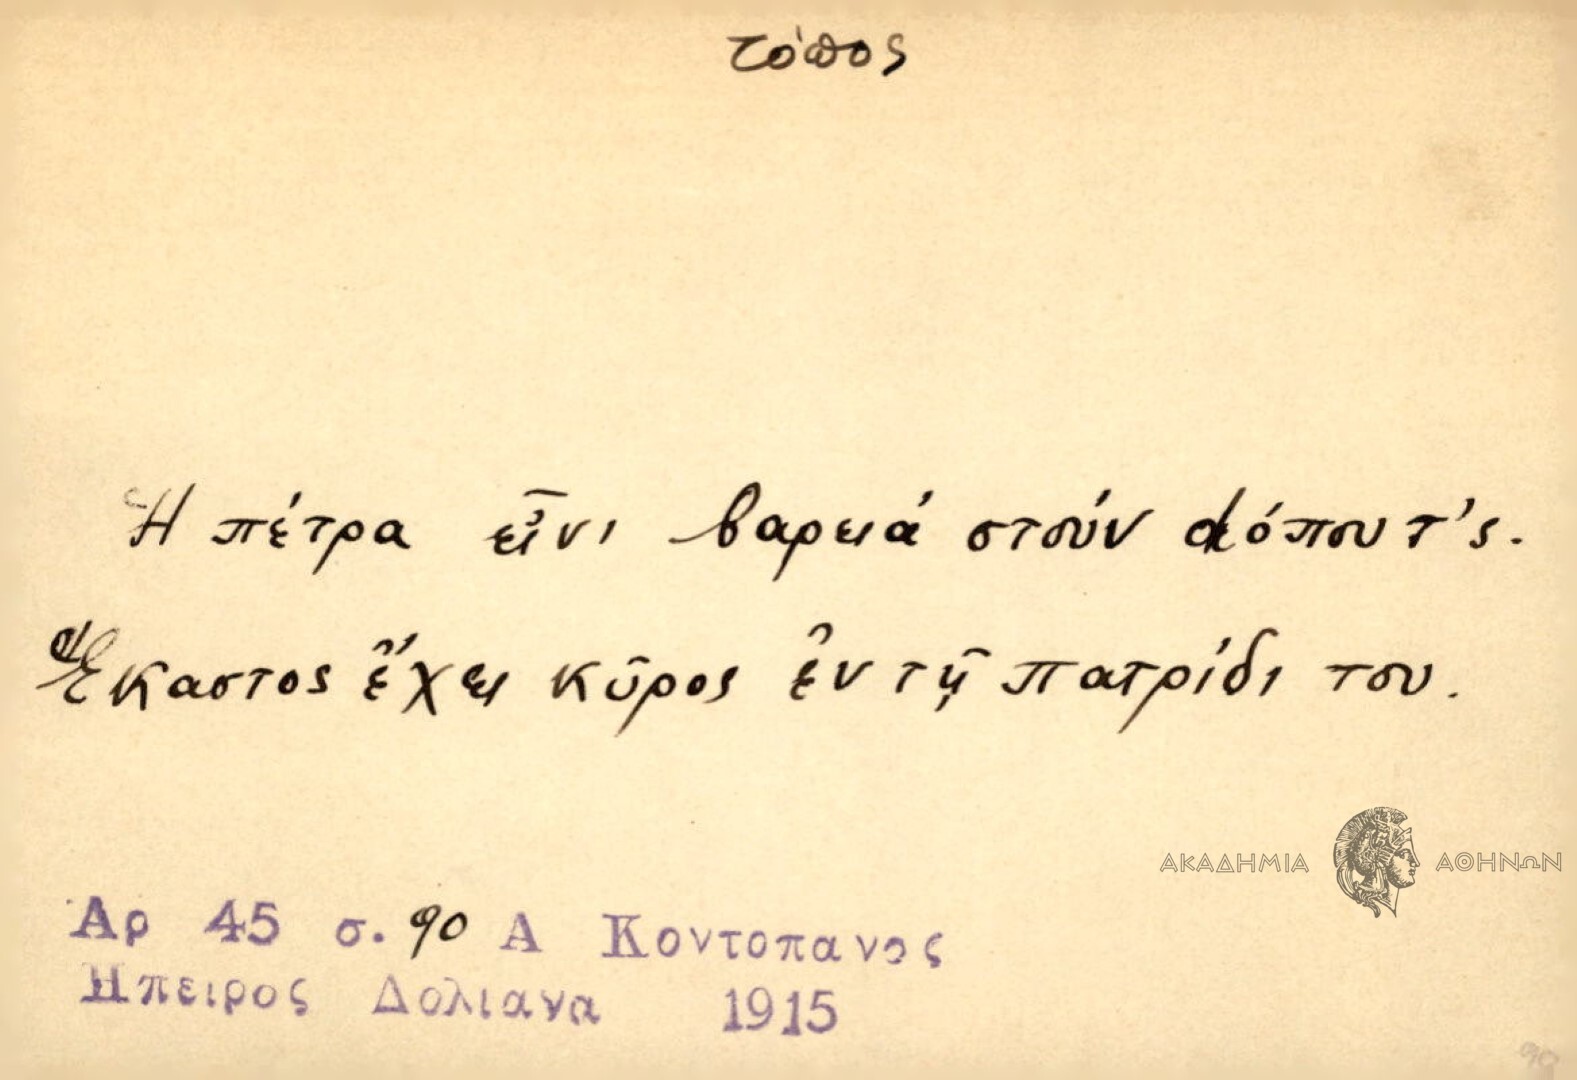 τόπος
Ἡ πέτρα εἶνι βαρειά στούν dόπου τ'ς.
Ἕκαστος ἔχει κῦρος ἐν τῇ πατρίδι του.
ΑΚΑΔΗΜΙΑ ΑΘΗΝΩΝ
Αρ 45 σ. 90 Α Κοντοπανος
Ηπειρος Δολιανα 1915
90